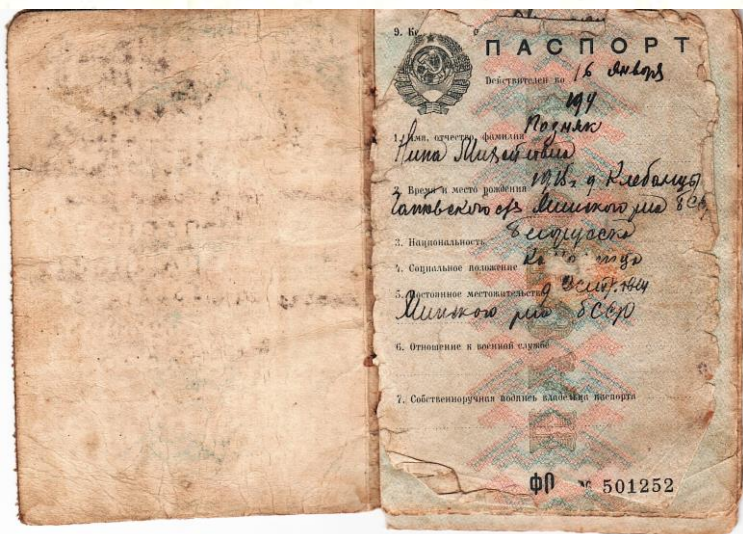 9.
ПАСПОРТ
Действителен по 16 Января
194
1. Имя, отчество, фамилия Позняк
Нина Михайловна
2. Время и место рождения 1918 г д
Минского р-на БССР
3. Национальность Белорусска
4. Социальное положение
5. Постоянное местожительство д
Минского р-на БССР
6. Отношение к военной службе
7. Собственноручная подпись владельца паспорта
ФП № 501252